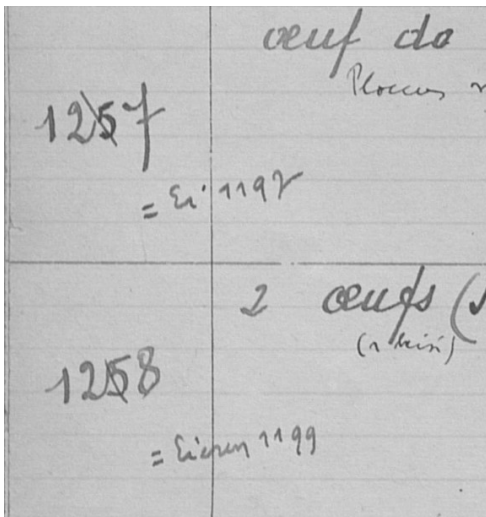 oeuf de
Ploceus
1257
= Ei 1197
2 oeufs (
(1 brisé)
1258
= Eieren 1199